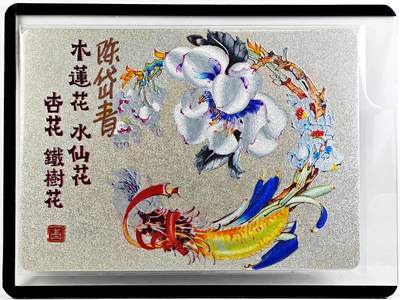 陈岱青
木蓮花 水仙花
杏花 鐵樹花